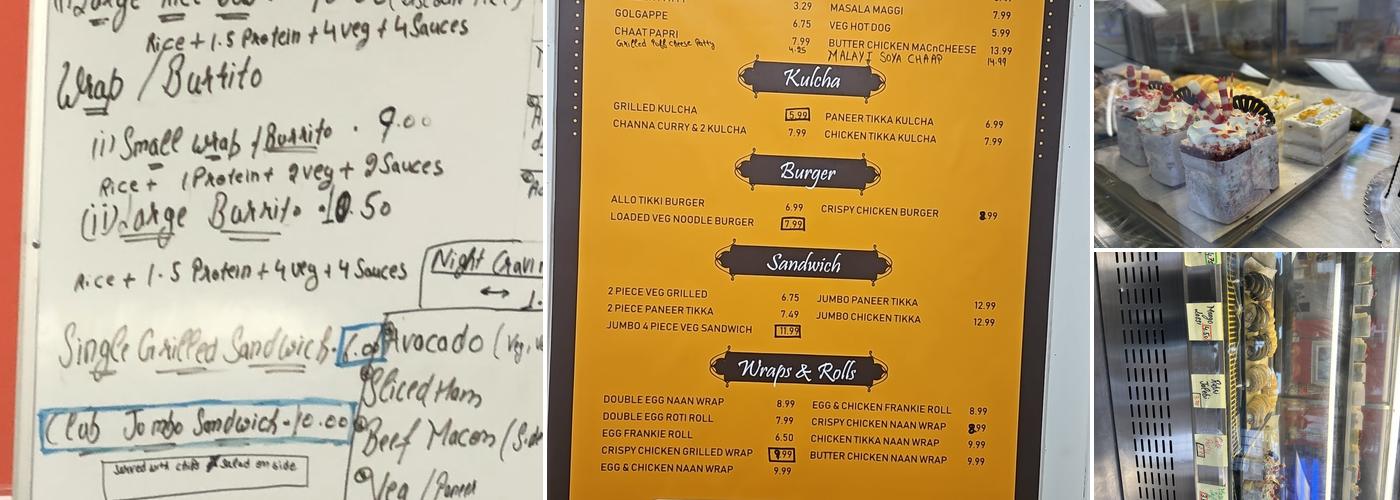 Rice + 1.5 Protein + 4 veg + 4 Sauces
Wrap / Burrito
(i) Small wrap / Burrito . 9.00
Rice + 1 Protein + 2 veg + 2 Sauces
(ii) Large Burrito . 10.50
Rice + 1.5 Protein + 4 veg + 4 Sauces
Night
Single Grilled Sandwich -
Avocado (
Sliced Ham
Club Jombo Sandwich - 10.00
Beef Macon
Served with chips Salad on side
Veg / Paneer
3.29 MASALA MAGGI 7.99
GOLGAPPE 6.75 VEG HOT DOG 5.99
CHAAT PAPRI 7.99 BUTTER CHICKEN MACnCHEESE 13.99
Grilled Puff cheese Patty 4.25 MALAYI SOYA CHAAP 14.99
Kulcha
GRILLED KULCHA 5.99 PANEER TIKKA KULCHA 6.99
CHANNA CURRY & 2 KULCHA 7.99 CHICKEN TIKKA KULCHA 7.99
Burger
ALLO TIKKI BURGER 6.99 CRISPY CHICKEN BURGER 8.99
LOADED VEG NOODLE BURGER 7.99
Sandwich
2 PIECE VEG GRILLED 6.75 JUMBO PANEER TIKKA 12.99
2 PIECE PANEER TIKKA 7.49 JUMBO CHICKEN TIKKA 12.99
JUMBO 4 PIECE VEG SANDWICH 11.99
Wraps & Rolls
DOUBLE EGG NAAN WRAP 8.99 EGG & CHICKEN FRANKIE ROLL 8.99
DOUBLE EGG ROTI ROLL 7.99 CRISPY CHICKEN NAAN WRAP 8.99
EGG FRANKIE ROLL 6.50 CHICKEN TIKKA NAAN WRAP 9.99
CRISPY CHICKEN GRILLED WRAP 9.99 BUTTER CHICKEN NAAN WRAP 9.99
EGG & CHICKEN NAAN WRAP 9.99
Mango